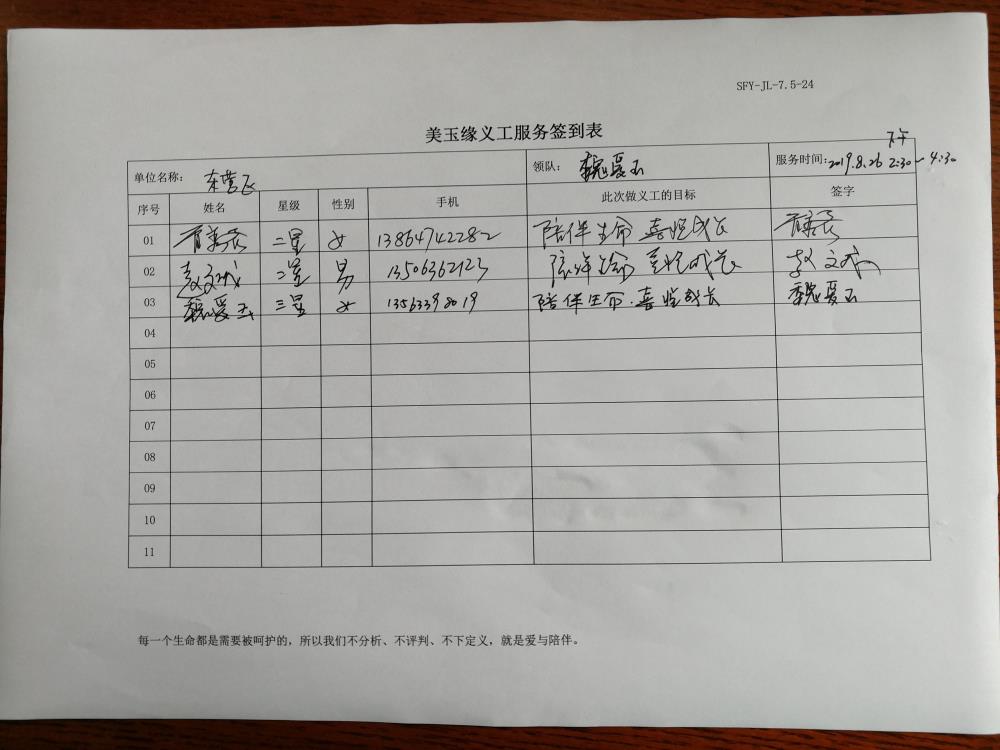 SFY-JL-7.5-24
美玉缘义工服务签到表
下午
单位名称： 东营飞 领队： 魏爱玉 服务时间：2019.8.26 2:30-4:30
序号 姓名 星级 性别 手机 此次做义工的目标 签字
01 二星 女 13864742282 陪伴生命 喜悦成长
02 赵文成 二星 男 13506362123 陪伴生命 喜悦成长 赵文成
03 魏爱玉 三星 女 13563398019 陪伴生命.喜悦成长 魏爱玉
04
05
06
07
08
09
10
11
每一个生命都是需要被呵护的，所以我们不分析、不评判、不下定义，就是爱与陪伴。